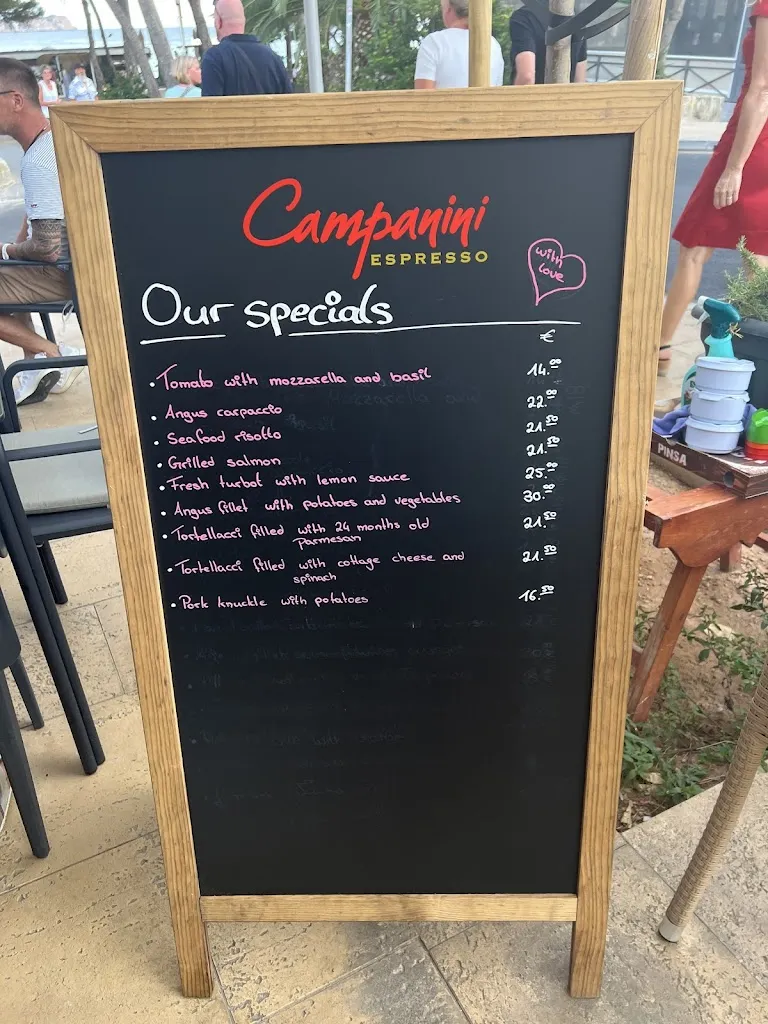 Campanini
ESPRESSO
with
love
Our specials
€
• Tomato with mozzarella and basil 14.00
• Angus carpaccio 22.00
• Seafood risotto 21.50
• Grilled salmon 21.50
• Fresh turbot with lemon sauce 25.00
• Angus fillet with potatoes and vegetables 30.00
• Tortellacci filled with 24 months old 21.50
Parmesan
• Tortellacci filled with cottage cheese and 21.50
spinach
• Pork knuckle with potatoes 16.50
PINSA